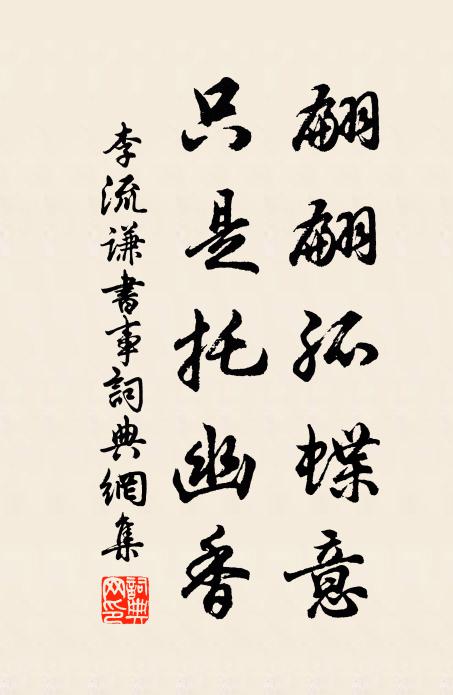 翩翩孤蝶意
只是托幽香
李流謙書事詞典網集
詞典網印